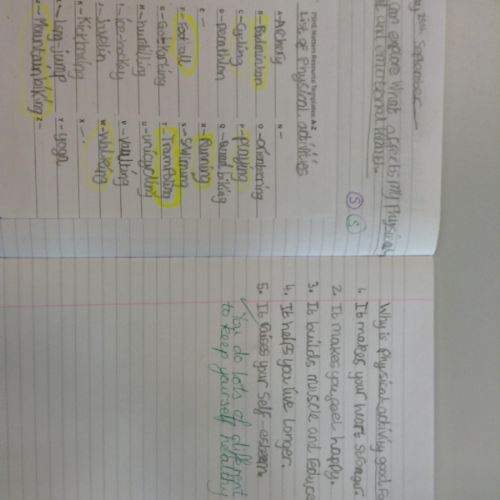 20th September
can explore what affects my physical
and emotional health.
S S
PSHE Matters Resource Templates A-Z
List of Physical activities
A - Archery N -
B - Badminton O - orienteering
C - Cycling P - playing
D - Decathlon Q - quad biking
E - R - Running
F - Football S - Swiming
G - Gokarting T - Trampoling
H - hurdling U - unicycling
I - ice-hockey V - Vaulting
J - Javelin W - Walking
K - X -
L - long jump Y - yoga
M - Mountain biking Z -
Why is physical activity good
1. It makes your heart stronger
2. It makes you feel happy.
3. It builds muscle and reduce
4. It helps you live longer.
5. It raises your self-esteem.
You do lots of different
to keep yourself healthy